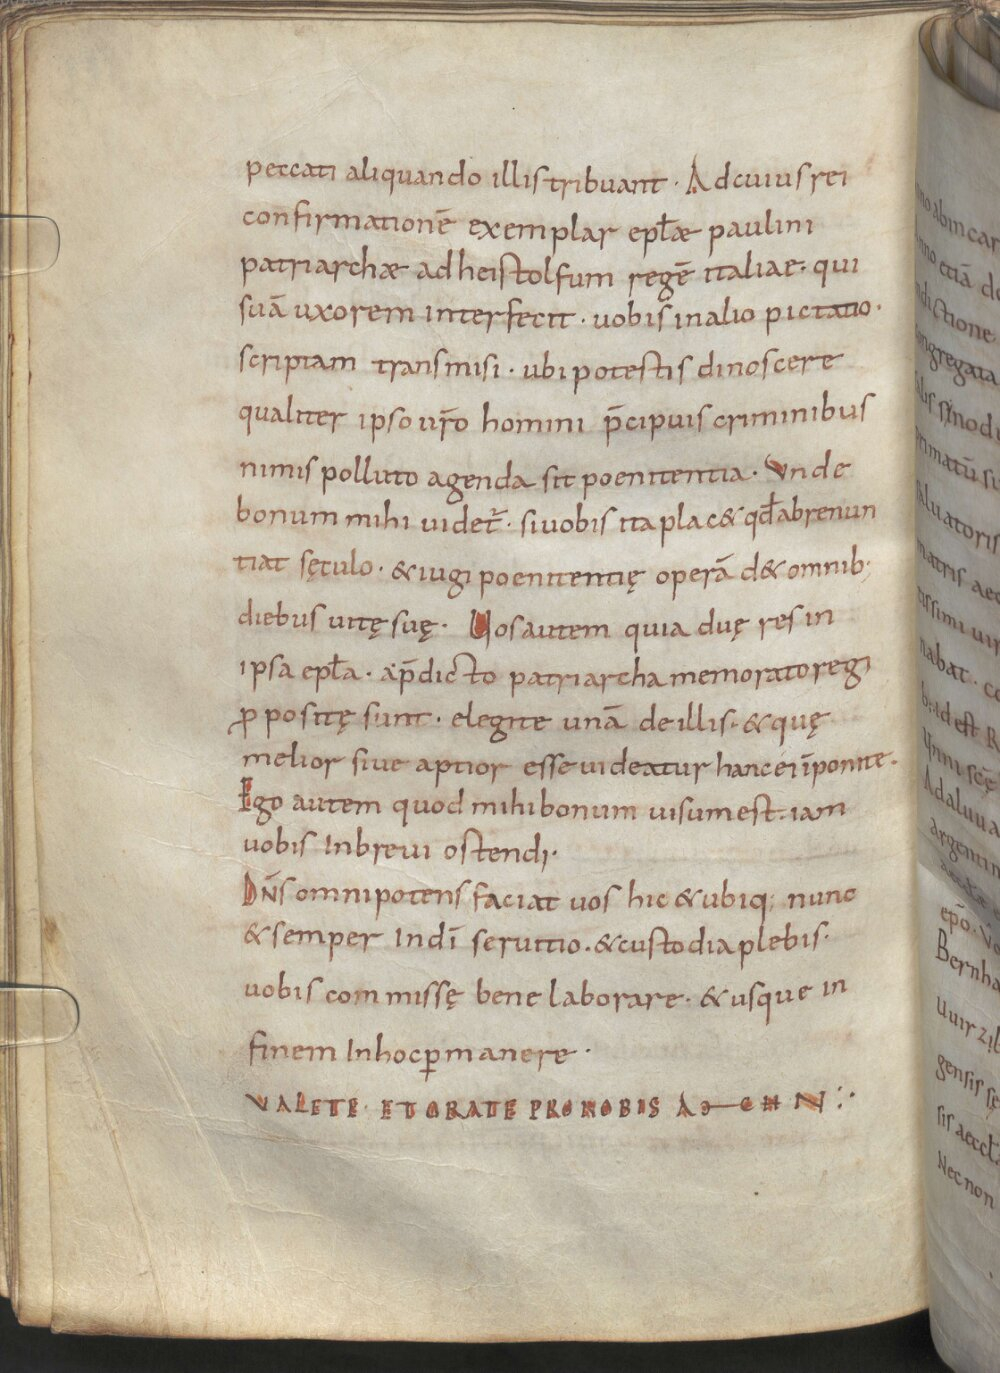 peccati aliquando illis tribuant · Ad cuius rei
confirmationē exemplar epłæ paulini
patriarchæ ad heistolfum regē italiae · qui
suā uxorem interfecit · uobis in alio pictatio ·
scriptam transmisi · ubi potestis dinoscere
qualiter ipso ur̄o homini p̄cipuis criminibus
nimis polluto agenda sit poenitentia · Unde
bonum mihi uidet᷒ · si uobis ita plac& qđ abrenun
tiat sęculo · & iugi poenitentię operā d& omnib;
diebus uitę suę · Uos autem quia duę res in
ipsa epła · a p̄dicto patriarcha memorato regi
ꝓpositę sunt · elegite unā de illis · & quę
melior siue aptior esse uideatur hanc ei īponite ·
Ego autem quod mihi bonum uisum est · iam
uobis In breui ostendi ·
Dn̄s omnipotens faciat uos hic & ubiq; nunc
& semper In dī seruitio · & custodia plebis ·
uobis commissę bene laborare · & usque in
finem In hoc ꝑmanere ·
VALETE · ET ORATE PRO NOBIS
no ab incar
nno etiā d
ndictione
ongregata
sinodu
rimatū su
aluatoris
matris aec
tissimi uir
nabat · co
id est R
Adalua
argentin
ep̄o · V
Bernha
Uuirzib
gensis se
sis aeccł
Nec non